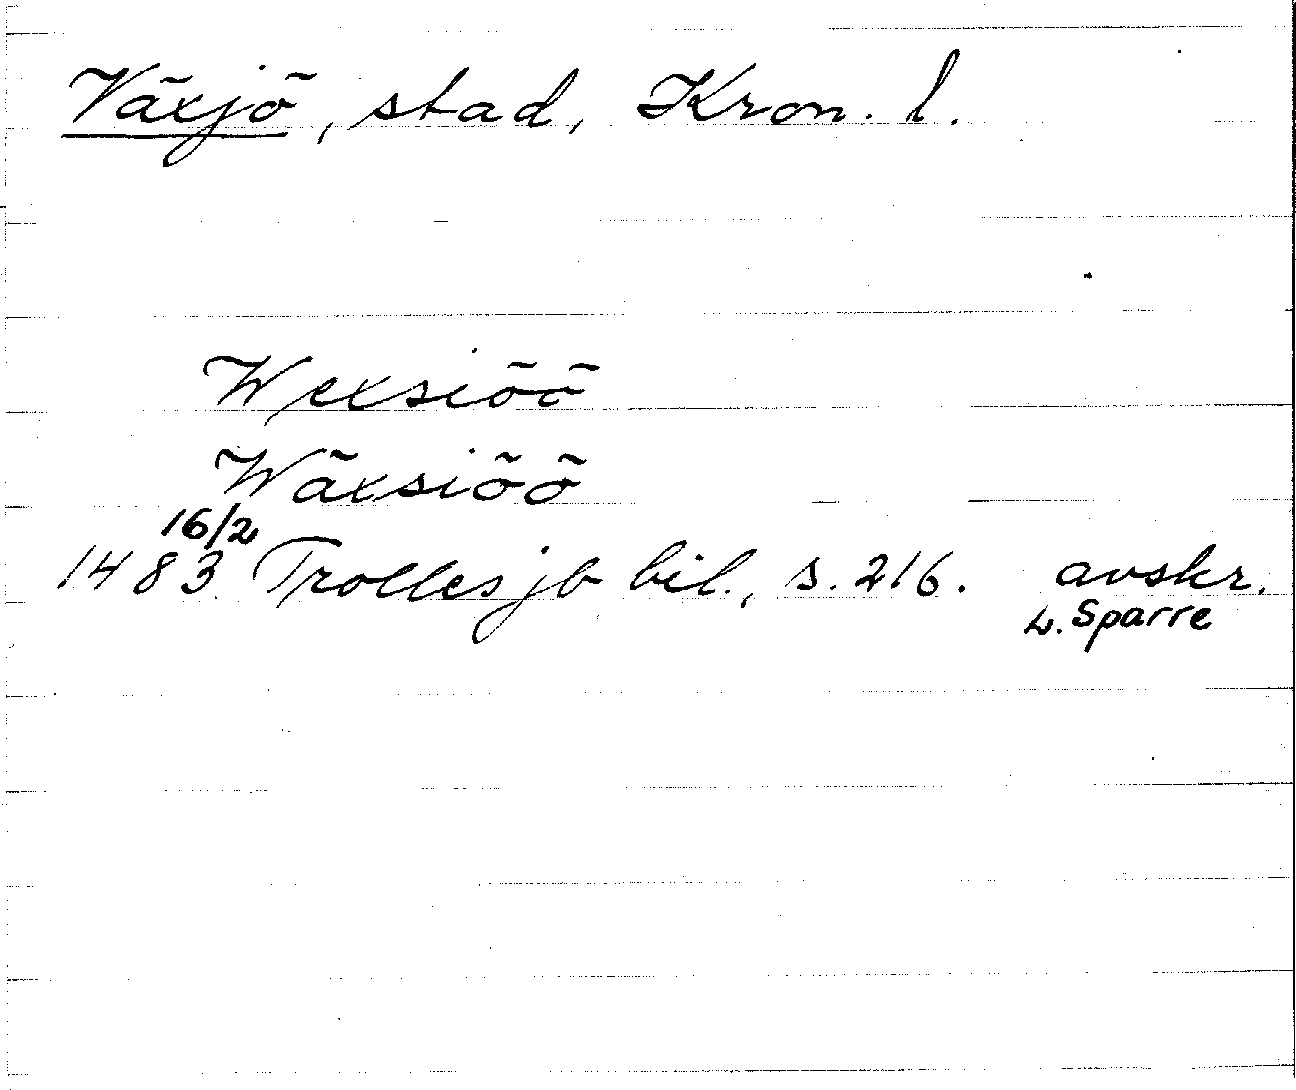 Växjö, stad, Kron. l.
Wexsiöö
Wäxsiöö
16/2
1483 Trolles jb bil., s. 216. avskr.
L. Sparre